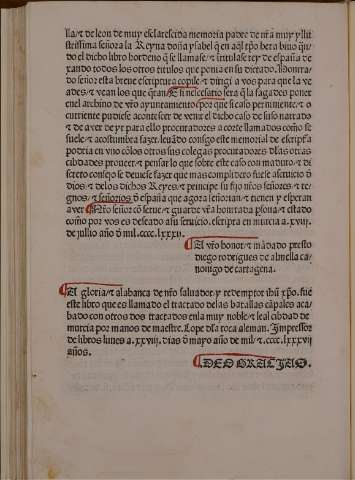 lla/⁊ de leon de muy esclarescida memoria padre de nr̃a muy yllu
strissima señora la Reyna doña ysabel q̃ en aq̃l tp̃o hera biuo q̃n
do el dicho libro hordeno q̃ se llamase/⁊ intulase rey de españa de
xando todos los otros titulos que ponia en su dictado. Honrra
do señor esta breue escriptura copile ⁊ dirigi a vos para que la ve
ades/⁊ vean los que q̃rran. E si necessario sera q̃ la fagades poner
en el archiuo de vr̃o ayuntamiento por que si caso perminente/⁊ o
currente pudiese acontescer de venir el dicho caso de suso narrado
⁊ de aver de yr para ello procuradores a corte llamados como se
suele/⁊ acostumbra fazer. leuãdo consigo este memorial de escript̃a
podria en vno cõ los otros sus colegas procuradores d̃las otras
cibdades proueer/⁊ pensar lo que sobre este caso con maduro/⁊ di
screto consejo se deuiese fazer que mas complidero fuese a seruicio d̃
dios/⁊ de los dichos Reyes/⁊ principe su fijo nr̃os señores/⁊ re
gnos/⁊ señorios d̃ españa que agora señorian/⁊ tienen y esperan
aver. Nr̃o señor cõserue/⁊ guarde vr̃a honrrada p̃sona/⁊ estado
como por vos es deseado a su seruicio. escripta en murcia a .xvij.
de jullio año d̃ mil.cccc.lxxxij.
A vr̃o honor/⁊ mãdado presto
diego rodrigues de almella ca
nonigo de cartagena.
A gloria/⁊ alabanca de nr̃o saluador y redemptor ihũ xp̃o. fue
este libro que es llamado el tractado de las batallas cãpales aca
bado con otros dos tractados en la muy noble/⁊ leal cibdad de
murcia por manos de maestre. Lope d̃la roca aleman. Impressor
de libros lunes a .xxviij. dias d̃ mayo año de mil/⁊.cccc.lxxxvij
años.
.DEO GRACIAS.